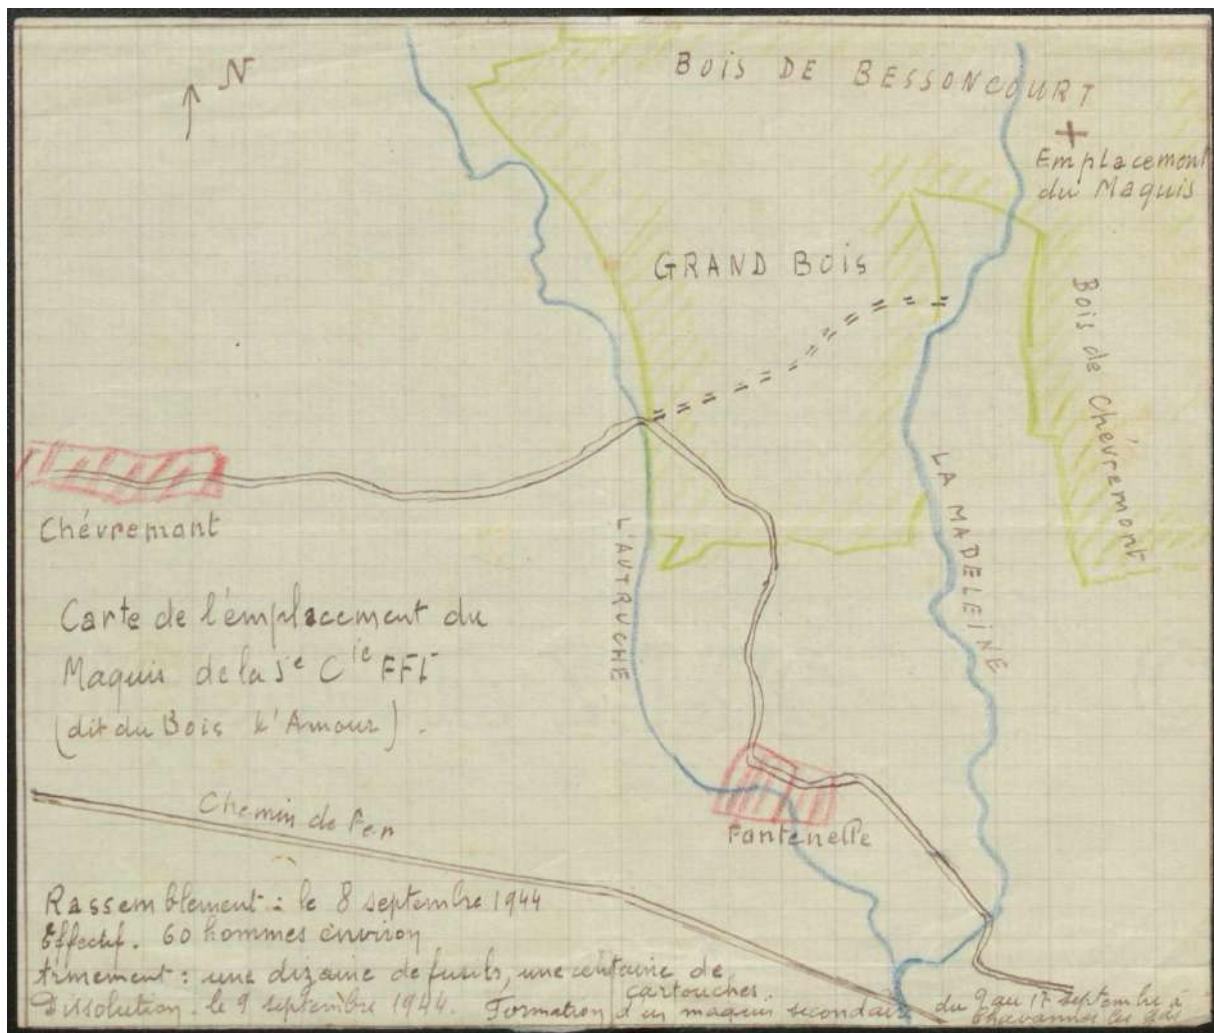 N
BOIS DE BESSONCOURT
Emplacement
du Maquis
GRAND BOIS
Bois de Chévremont
Chévremont
L'AUTRUCHE
LA MADELEINE
Carte de l'emplacement du
Maquis de la 5e Cie FFI
(dit du Bois d'Amour).
Fontenelle
Chemin de Fer
Rassemblement : le 8 septembre 1944
Effectif. 60 hommes environ
Armement : une dizaine de fusils, une centaine de
cartouches.
Dissolution le 9 septembre 1944. Formation d'un maquis secondaire du 9 au 17 septembre à
Chavannes les